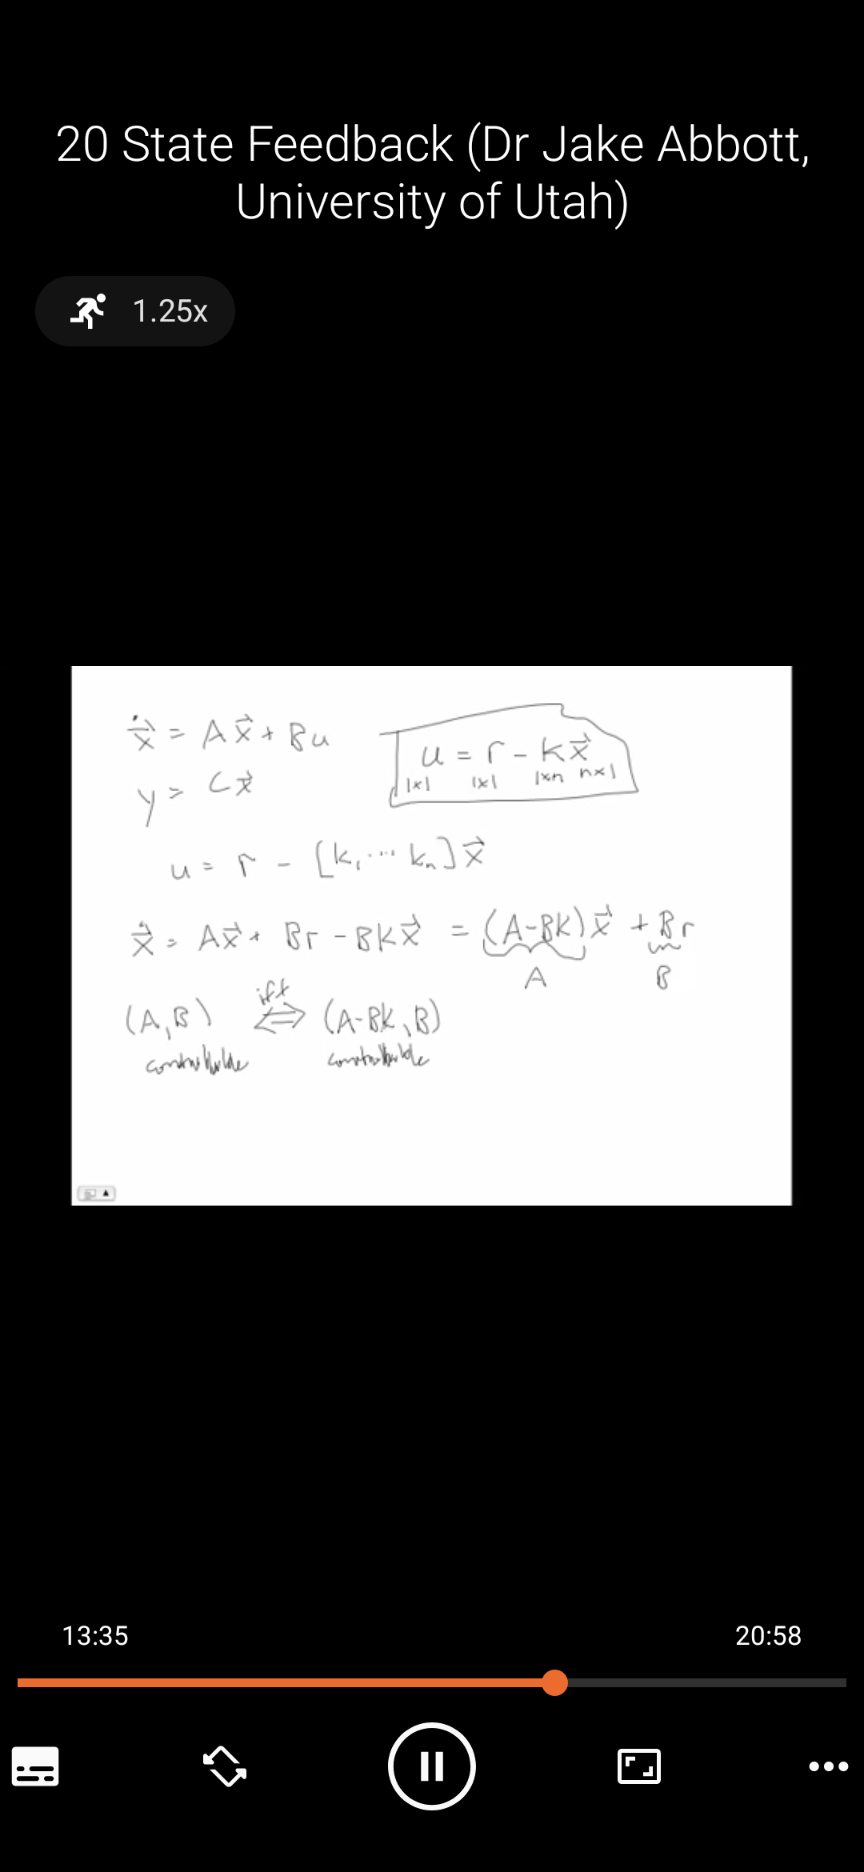 20 State Feedback (Dr Jake Abbott,
University of Utah)
1.25x
ẋ⃗ = Ax⃗ + Bu
u = r - kx⃗
1x1 1x1 1xn nx1
y = Cx⃗
u = r - [k, ... kₙ]x⃗
ẋ⃗ = Ax⃗ + Br - BKx⃗ = (A-BK)x⃗ + Br
A B
iff
(A,B) ⇔ (A-BK, B)
controllable controllable
13:35 20:58